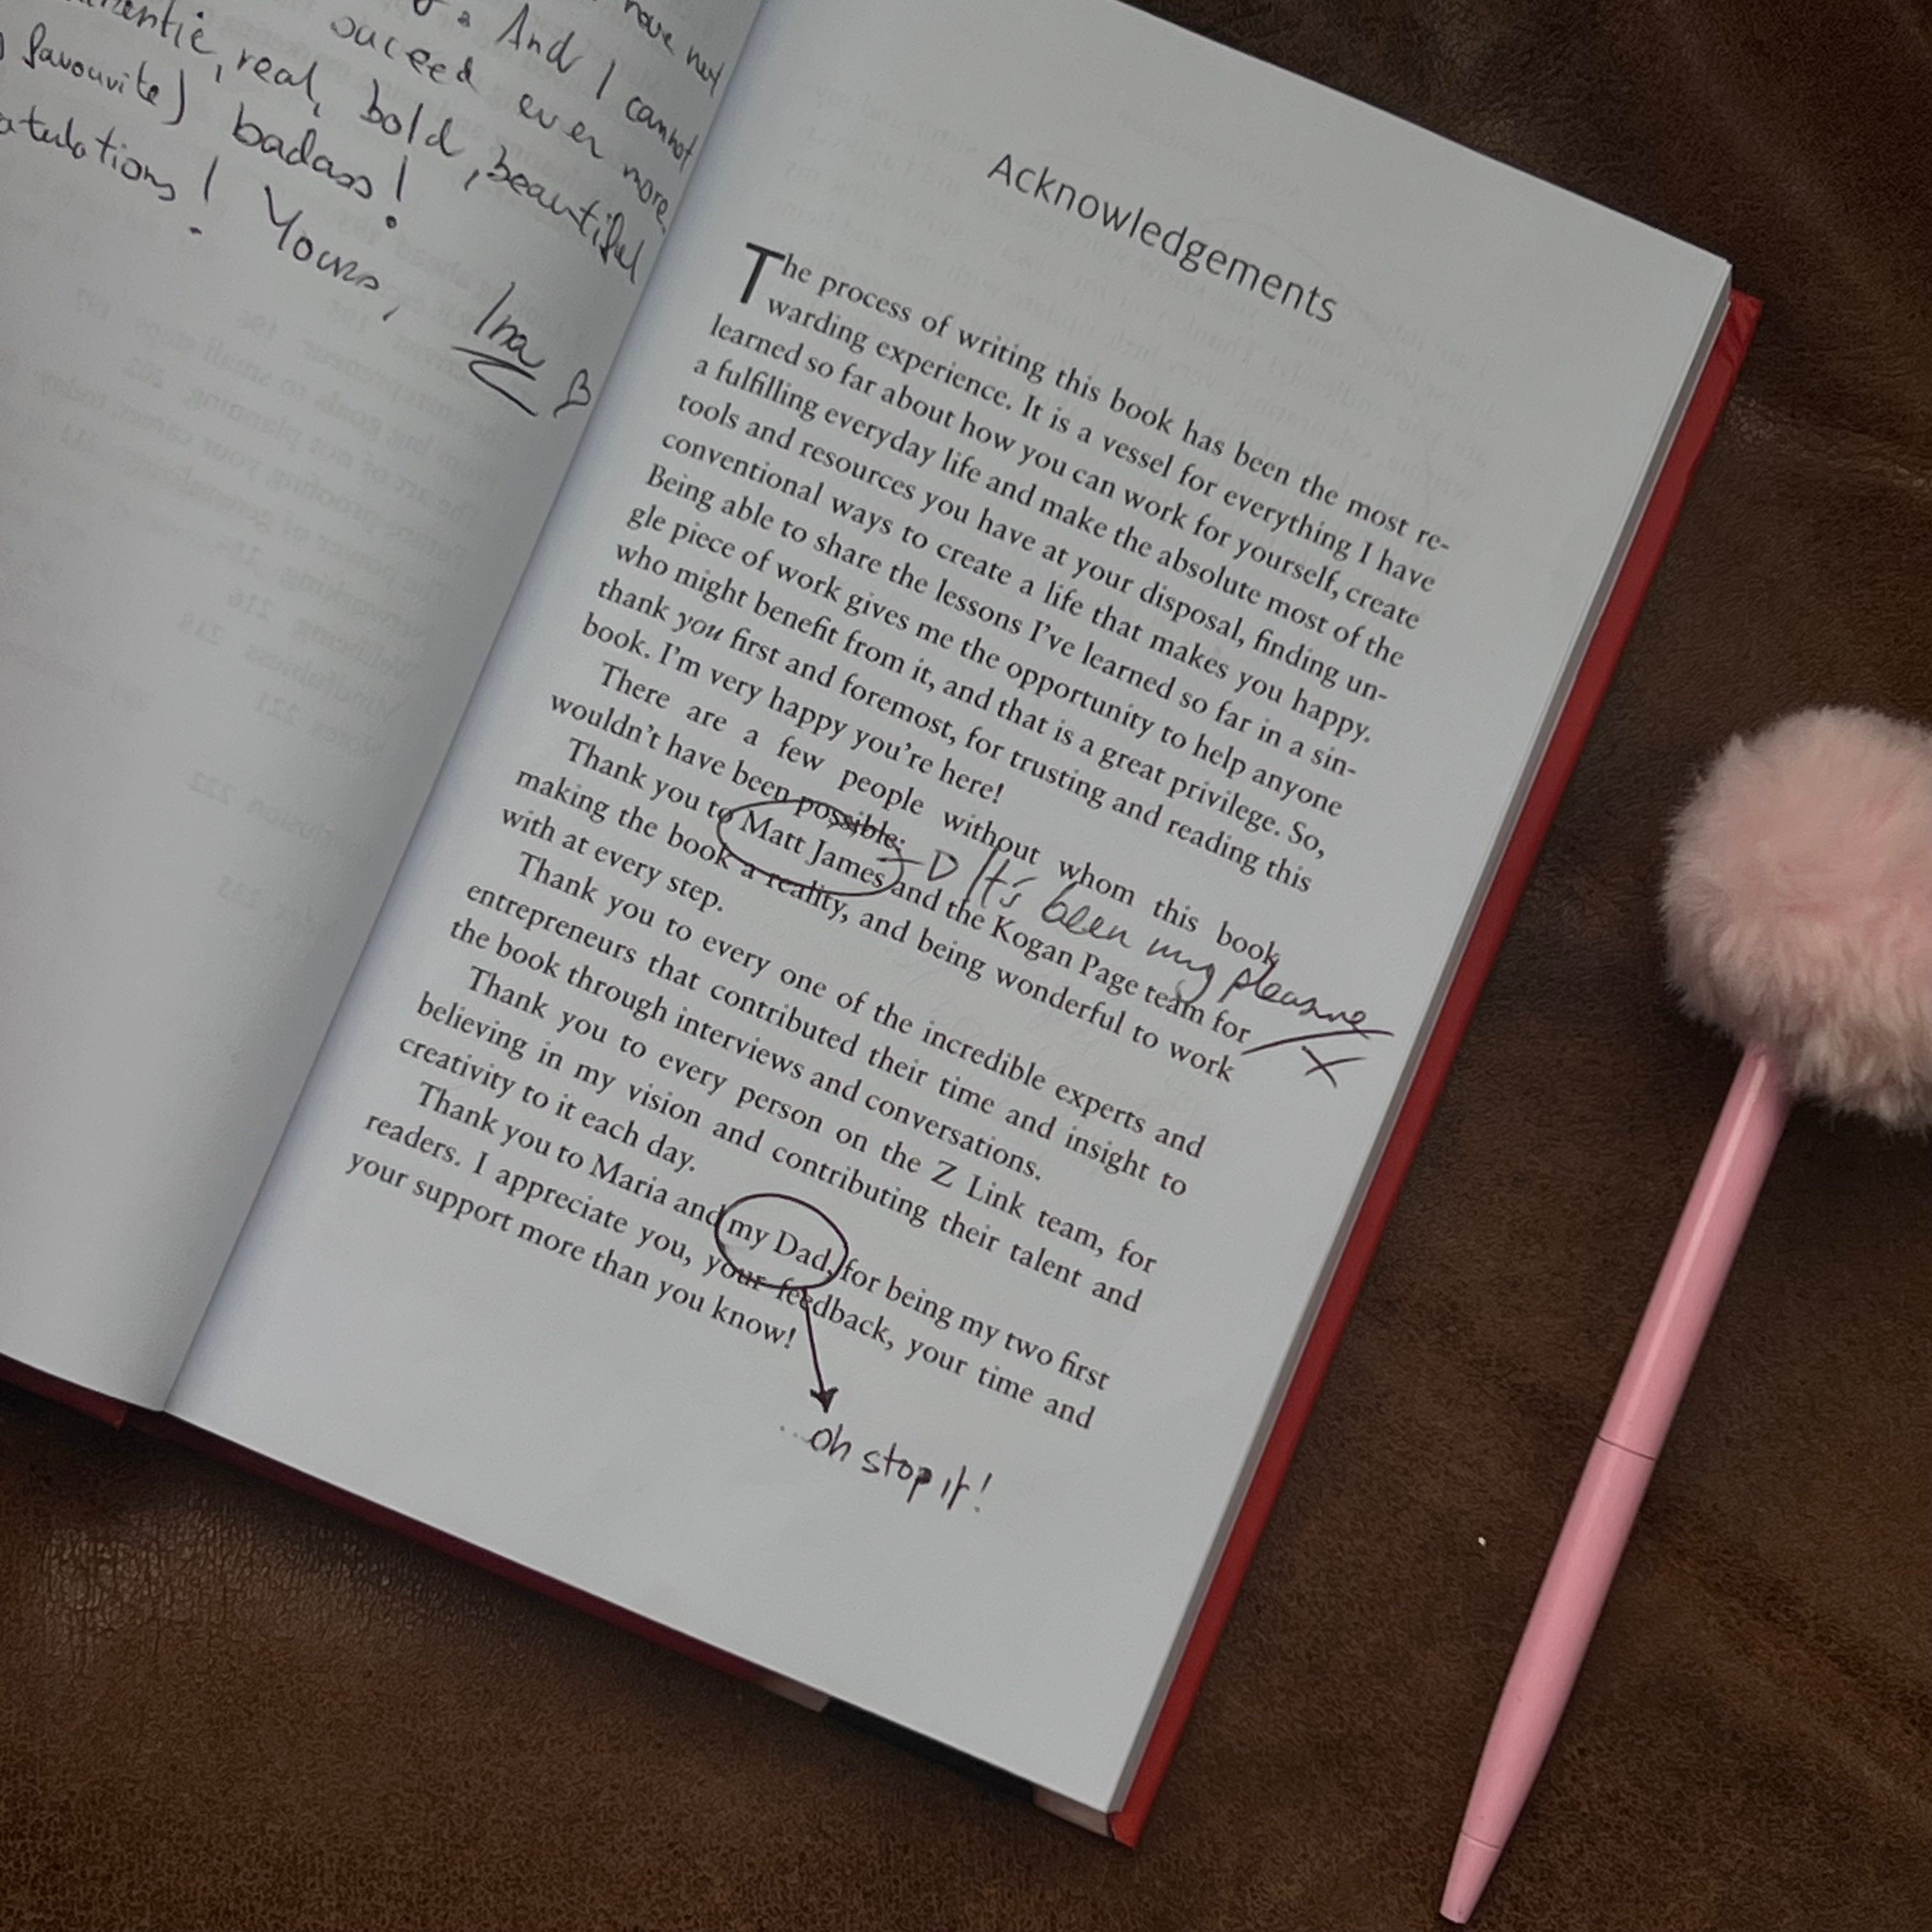 have not
And I cannot
suceed ever more
real, bold, beautiful
favourite) badass!
Yours,
Ina
Acknowledgements
The process of writing this book has been the most re-
warding experience. It is a vessel for everything I have
learned so far about how you can work for yourself, create
a fulfilling everyday life and make the absolute most of the
tools and resources you have at your disposal, finding un-
conventional ways to create a life that makes you happy.
Being able to share the lessons I've learned so far in a sin-
gle piece of work gives me the opportunity to help anyone
who might benefit from it, and that is a great privilege. So,
thank you first and foremost, for trusting and reading this
book. I'm very happy you're here!
There are a few people without whom this book
wouldn't have been possible:
It's been my pleasure
x
Thank you to Matt James and the Kogan Page team for
making the book a reality, and being wonderful to work
with at every step.
Thank you to every one of the incredible experts and
entrepreneurs that contributed their time and insight to
the book through interviews and conversations.
Thank you to every person on the Z Link team, for
believing in my vision and contributing their talent and
creativity to it each day.
Thank you to Maria and my Dad, for being my two first
readers. I appreciate you, your feedback, your time and
your support more than you know!
...oh stop it!